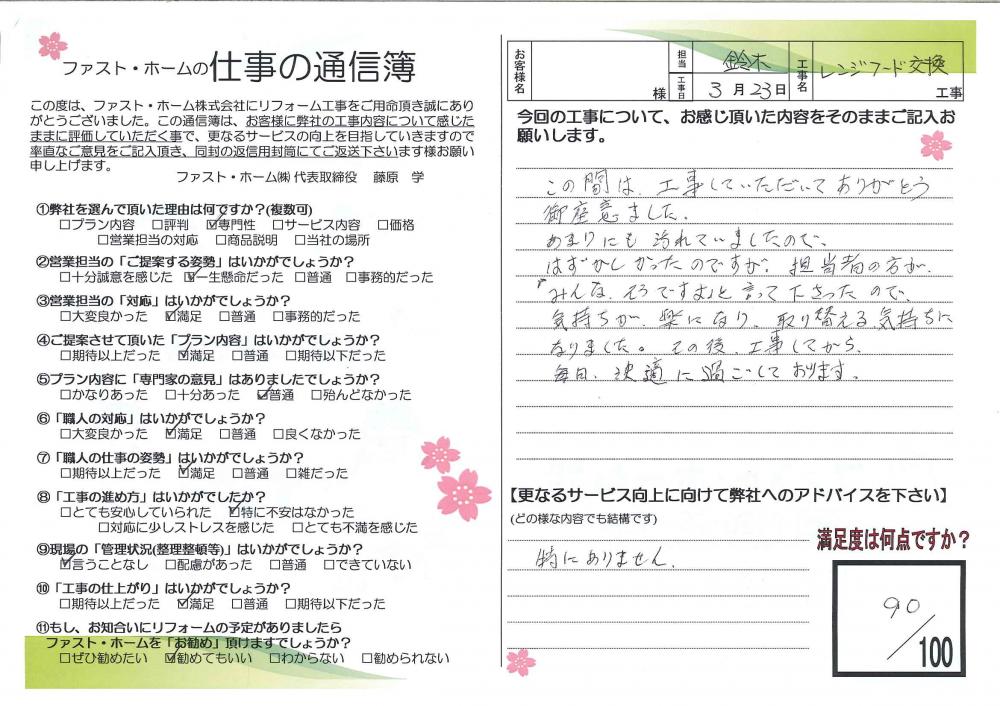 ファスト・ホームの仕事の通信簿
この度は、ファスト・ホーム株式会社にリフォーム工事をご用命頂き誠にあり
がとうございました。この通信簿は、お客様に弊社の工事内容について感じた
ままに評価していただく事で、更なるサービスの向上を目指していきますので
率直なご意見をご記入頂き、同封の返信用封筒にてご返送下さいます様お願い
申し上げます。
ファスト・ホーム㈱ 代表取締役 藤原 学
①弊社を選んで頂いた理由は何ですか?(複数可)
□プラン内容 □評判 ☑専門性 □サービス内容 □価格
□営業担当の対応 □商品説明 □当社の場所
②営業担当の「ご提案する姿勢」はいかがでしょうか?
□十分誠意を感じた ☑一生懸命だった □普通 □事務的だった
③営業担当の「対応」はいかがでしょうか?
□大変良かった ☑満足 □普通 □事務的だった
④ご提案させて頂いた「プラン内容」はいかがでしょうか?
□期待以上だった ☑満足 □普通 □期待以下だった
⑤プラン内容に「専門家の意見」はありましたでしょうか?
□かなりあった □十分あった ☑普通 □殆んどなかった
⑥「職人の対応」はいかがでしょうか?
□大変良かった ☑満足 □普通 □良くなかった
⑦「職人の仕事の姿勢」はいかがでしょうか?
□期待以上だった ☑満足 □普通 □雑だった
⑧「工事の進め方」はいかがでしたか?
□とても安心していられた ☑特に不安はなかった
□対応に少しストレスを感じた □とても不満を感じた
⑨現場の「管理状況(整理整頓等)」はいかがでしょうか?
☑言うことなし □配慮があった □普通 □できていない
⑩「工事の仕上がり」はいかがでしょうか?
□期待以上だった ☑満足 □普通 □期待以下だった
⑪もし、お知合いにリフォームの予定がありましたら
ファスト・ホームを「お勧め」頂けますでしょうか?
□ぜひ勧めたい ☑勧めてもいい □わからない □勧められない
お客様名 様 担当 鈴木 工事日 3月23日 工事名 レンジフード交換 工事
今回の工事について、お感じ頂いた内容をそのままご記入お
願いします。
この間は、工事していただいてありがとう
御座意ました。
あまりにも汚れていましたので、
はずかしかったのですが、担当者の方が、
「みんな、そうですよ」と言って下さったので、
気持ちが、楽になり、取り替える気持ちに
なりました。その後、工事してから、
毎日、快適に過ごしております。
【更なるサービス向上に向けて弊社へのアドバイスを下さい】
(どの様な内容でも結構です)
特にありません。
満足度は何点ですか?
90/100